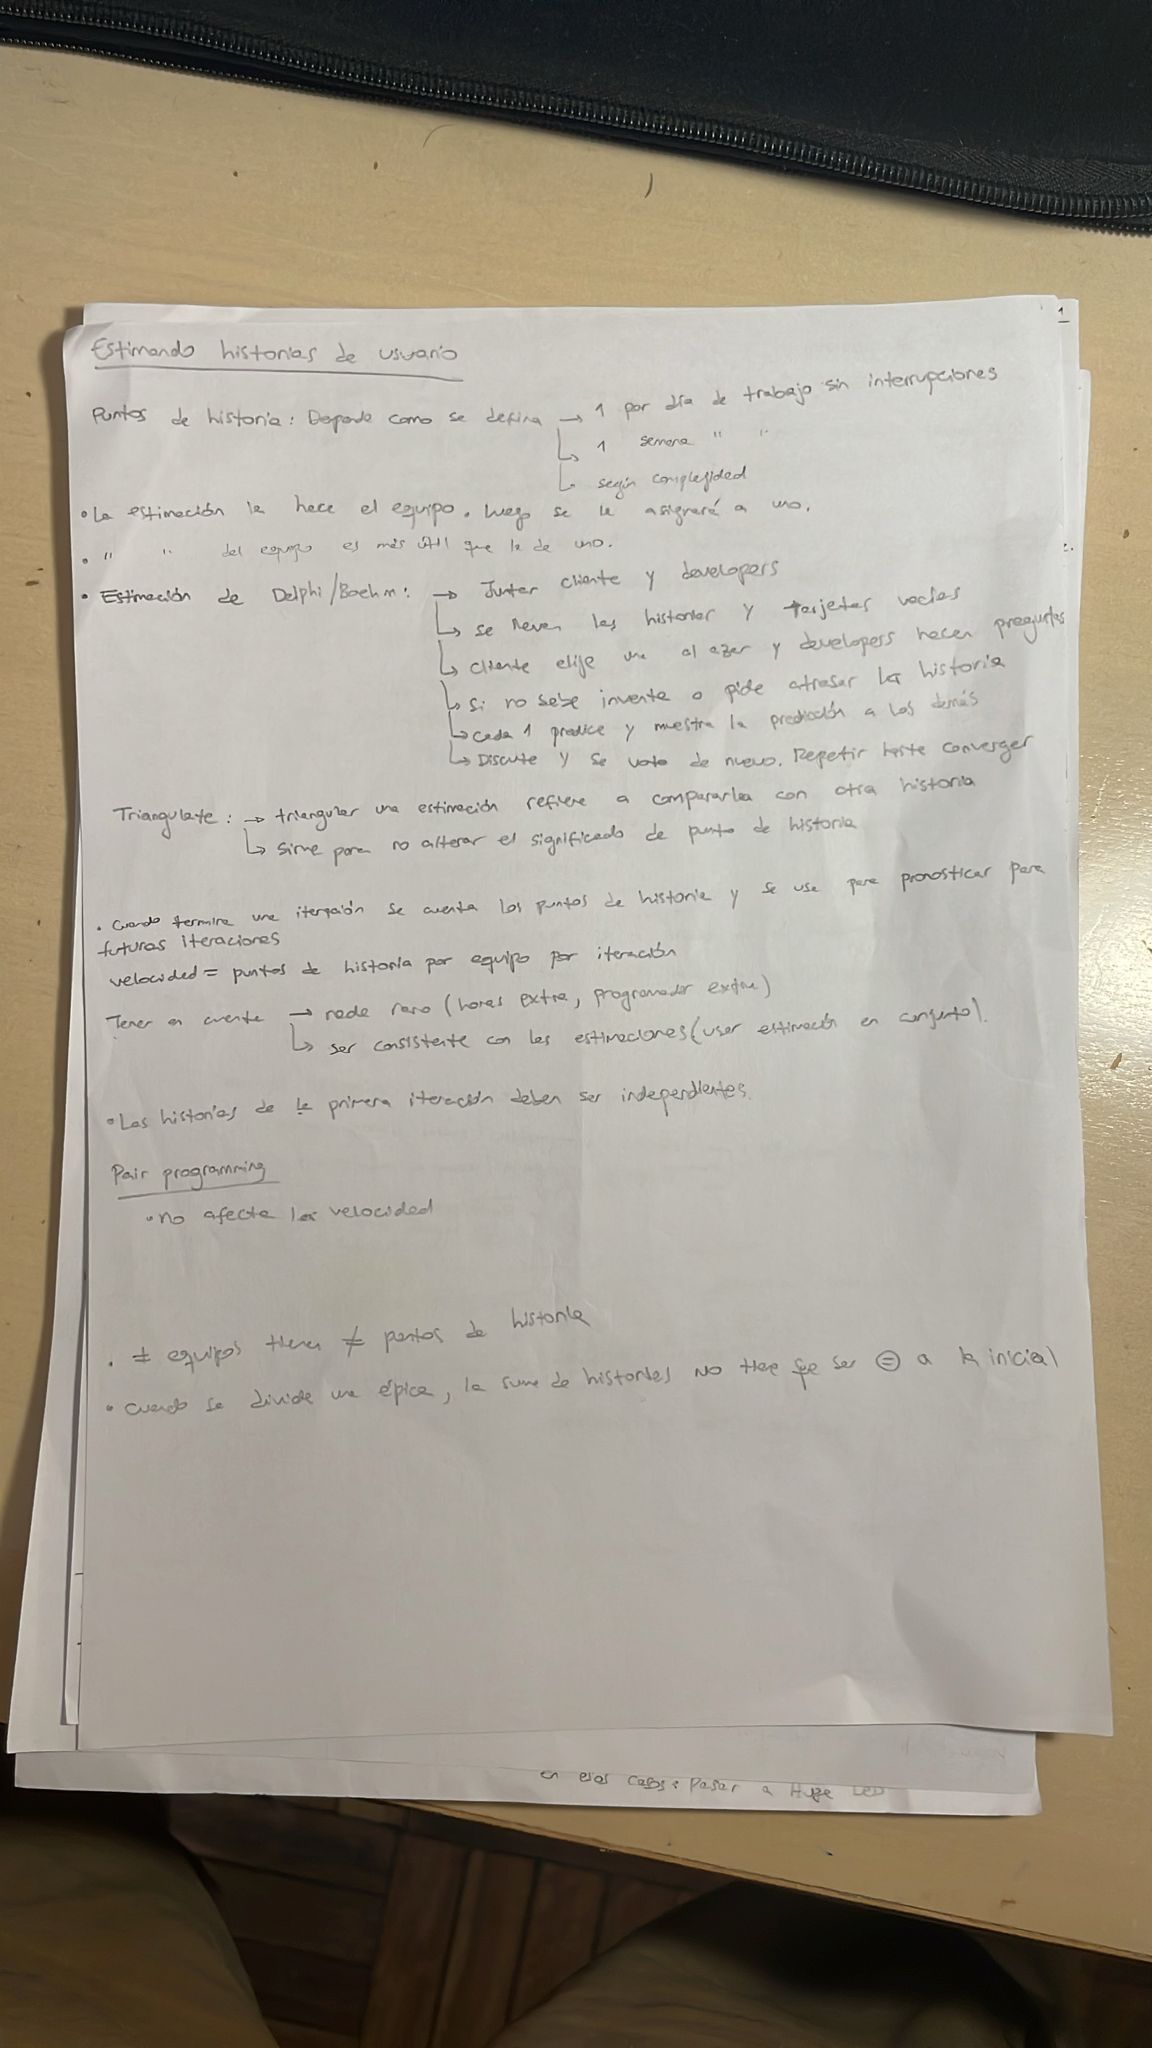 1
Estimando historias de usuario
Puntos de historia: Depende como se defina → 1 por día de trabajo sin interrupciones
↳ 1 semana " "
↳ según complejidad
• La estimación la hace el equipo. Luego se le asignará a uno.
• " " del equipo es más útil que la de uno.
2.
• Estimación de Delphi/Boehm: → Juntar cliente y developers
↳ se llevan las historias y tarjetas vacías
↳ cliente elije una al azar y developers hacen preguntas
↳ si no sabe inventa o pide atrasar la historia
↳ cada 1 predice y muestra la predicción a los demás
↳ Discute y se vota de nuevo. Repetir hasta converger
Triangulate: → triangular una estimación refiere a compararla con otra historia
↳ sirve para no alterar el significado de punto de historia
• Cuando termina una iteración se cuenta los puntos de historia y se usa para pronosticar para
futuras iteraciones
velocidad = puntos de historia por equipo por iteración
Tener en cuenta → nada raro (horas extra, programador extra)
↳ ser consistente con las estimaciones (usar estimación en conjunto).
• Las historias de la primera iteración deben ser independientes.
Pair programming
• no afecta la velocidad
• ≠ equipos tienen ≠ puntos de historia
• cuando se divide una épica, la suma de historias NO tiene que ser = a la inicial
en esos casos: Pasar a